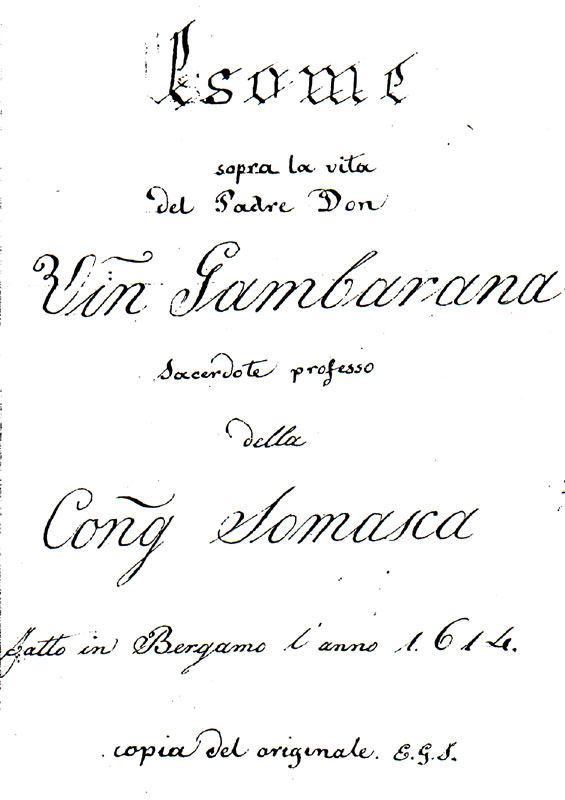 Esame
sopra la vita
del Padre Don
Vin̄ Gambarana
Sacerdote professo
della
Con̄g Somasca
fatto in Bergamo l'anno 1.614.
copia del originale. E.G.S.